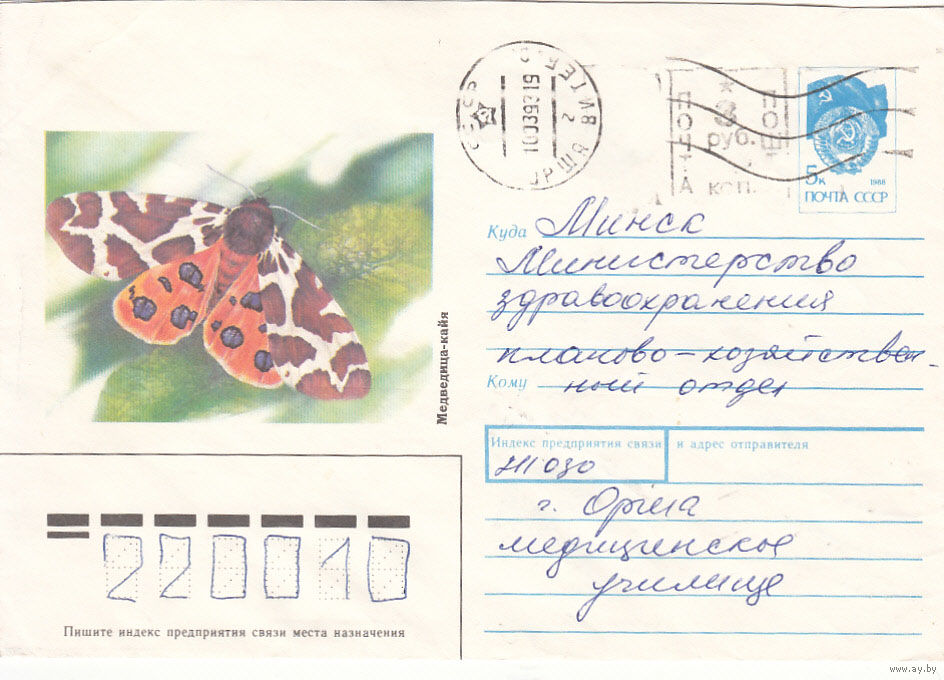 СССР
ОРША 2 ВИТЕБ
10039319
ПОЧТА
*
3
руб.
коп.
5к
1988
ПОЧТА СССР
Куда Минск
Министерство
здравоохранения
планово-хозяйствен-
Кому ный отдел
Медведица-кайя
Индекс предприятия связи и адрес отправителя
211030
г. Орша
медицинское
училище
220010
Пишите индекс предприятия связи места назначения
www.ay.by